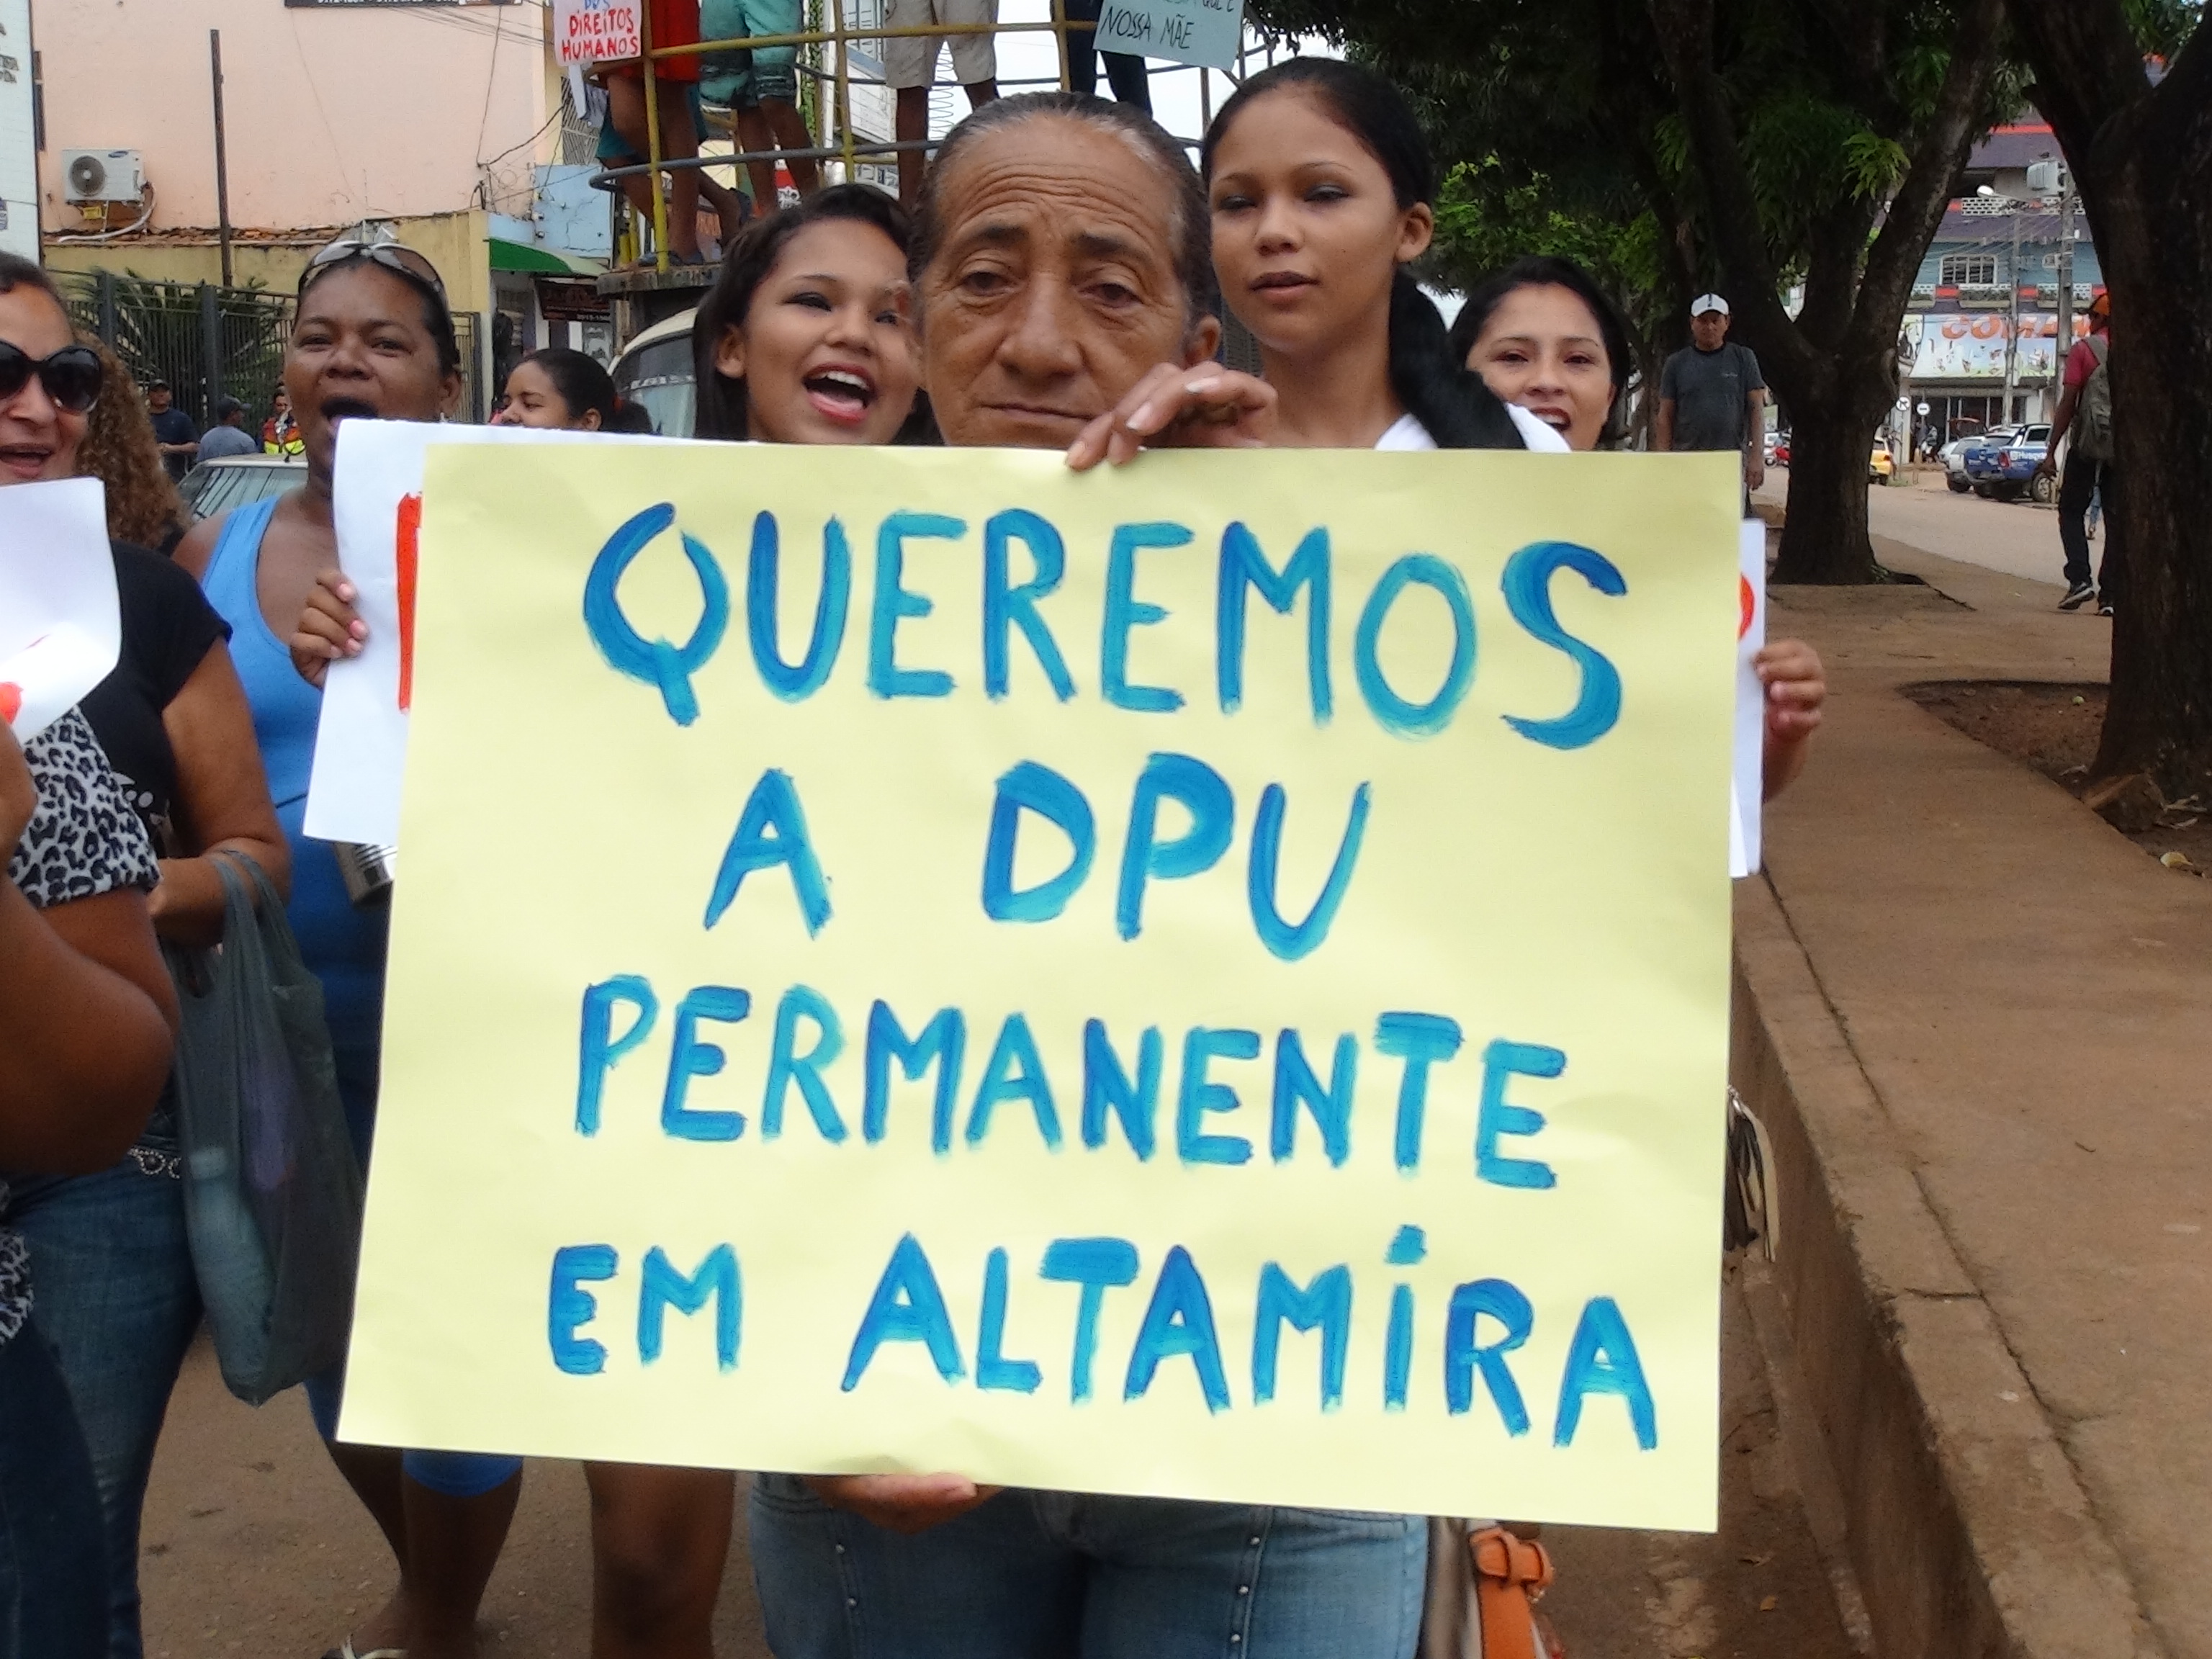 DOS
DIREITOS
HUMANOS
NOSSA MÃE
QUEREMOS
A DPU
PERMANENTE
EM ALTAMÍRA